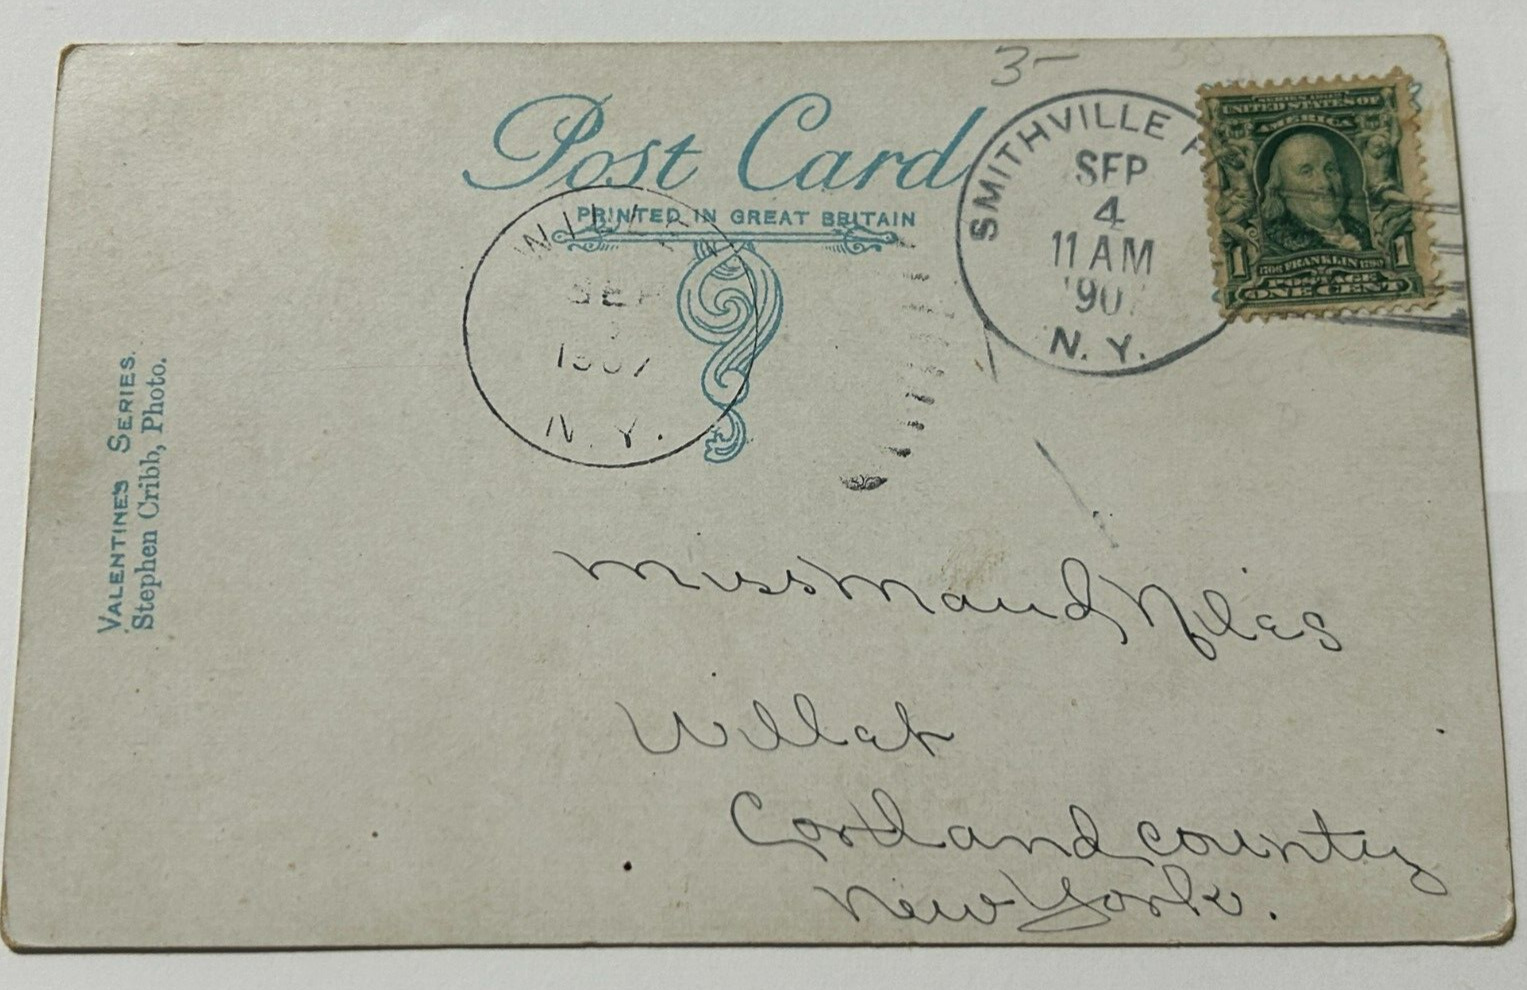 3-
Post Card
PRINTED IN GREAT BRITAIN
SMITHVILLE
SEP
4
11 AM
'90
N. Y.
SERIES 1902
UNITED STATES OF
AMERICA
1 1
1706 FRANKLIN 1790
POSTAGE
ONE CENT
SEP
1907
N. Y.
VALENTINE'S SERIES.
Stephen Cribb, Photo.
Miss Maud Niles
Willet
Cortland county
New York.